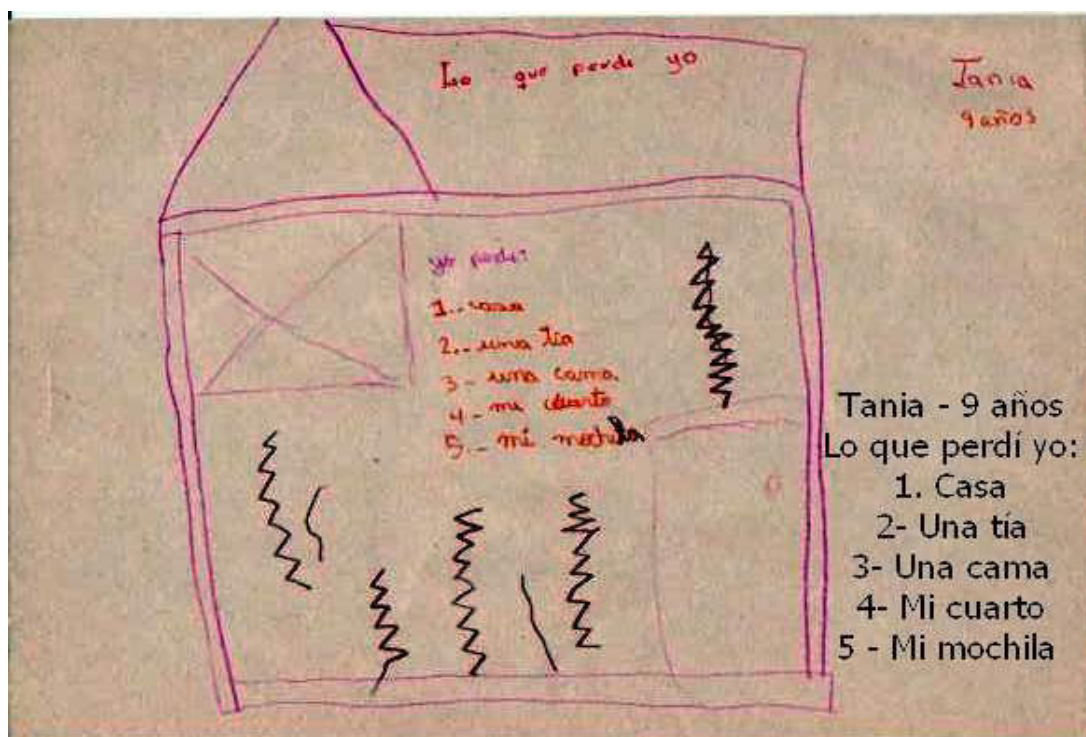 Lo que perdi yo
Tania
9 años
yo perdi:
1.. casa
2.. una tía
3 - una cama.
4 - mi cuarto
5.- mi mochila
Tania - 9 años
Lo que perdí yo:
1. Casa
2- Una tía
3- Una cama
4- Mi cuarto
5 - Mi mochila